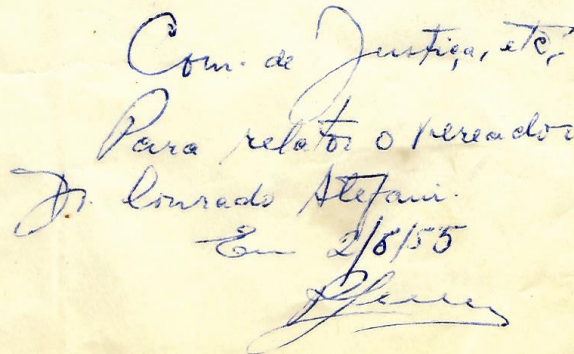 Com. de Justiça, etc.
Para relator o vereador
Dr. Conrado Stefani.
Em 2/8/55